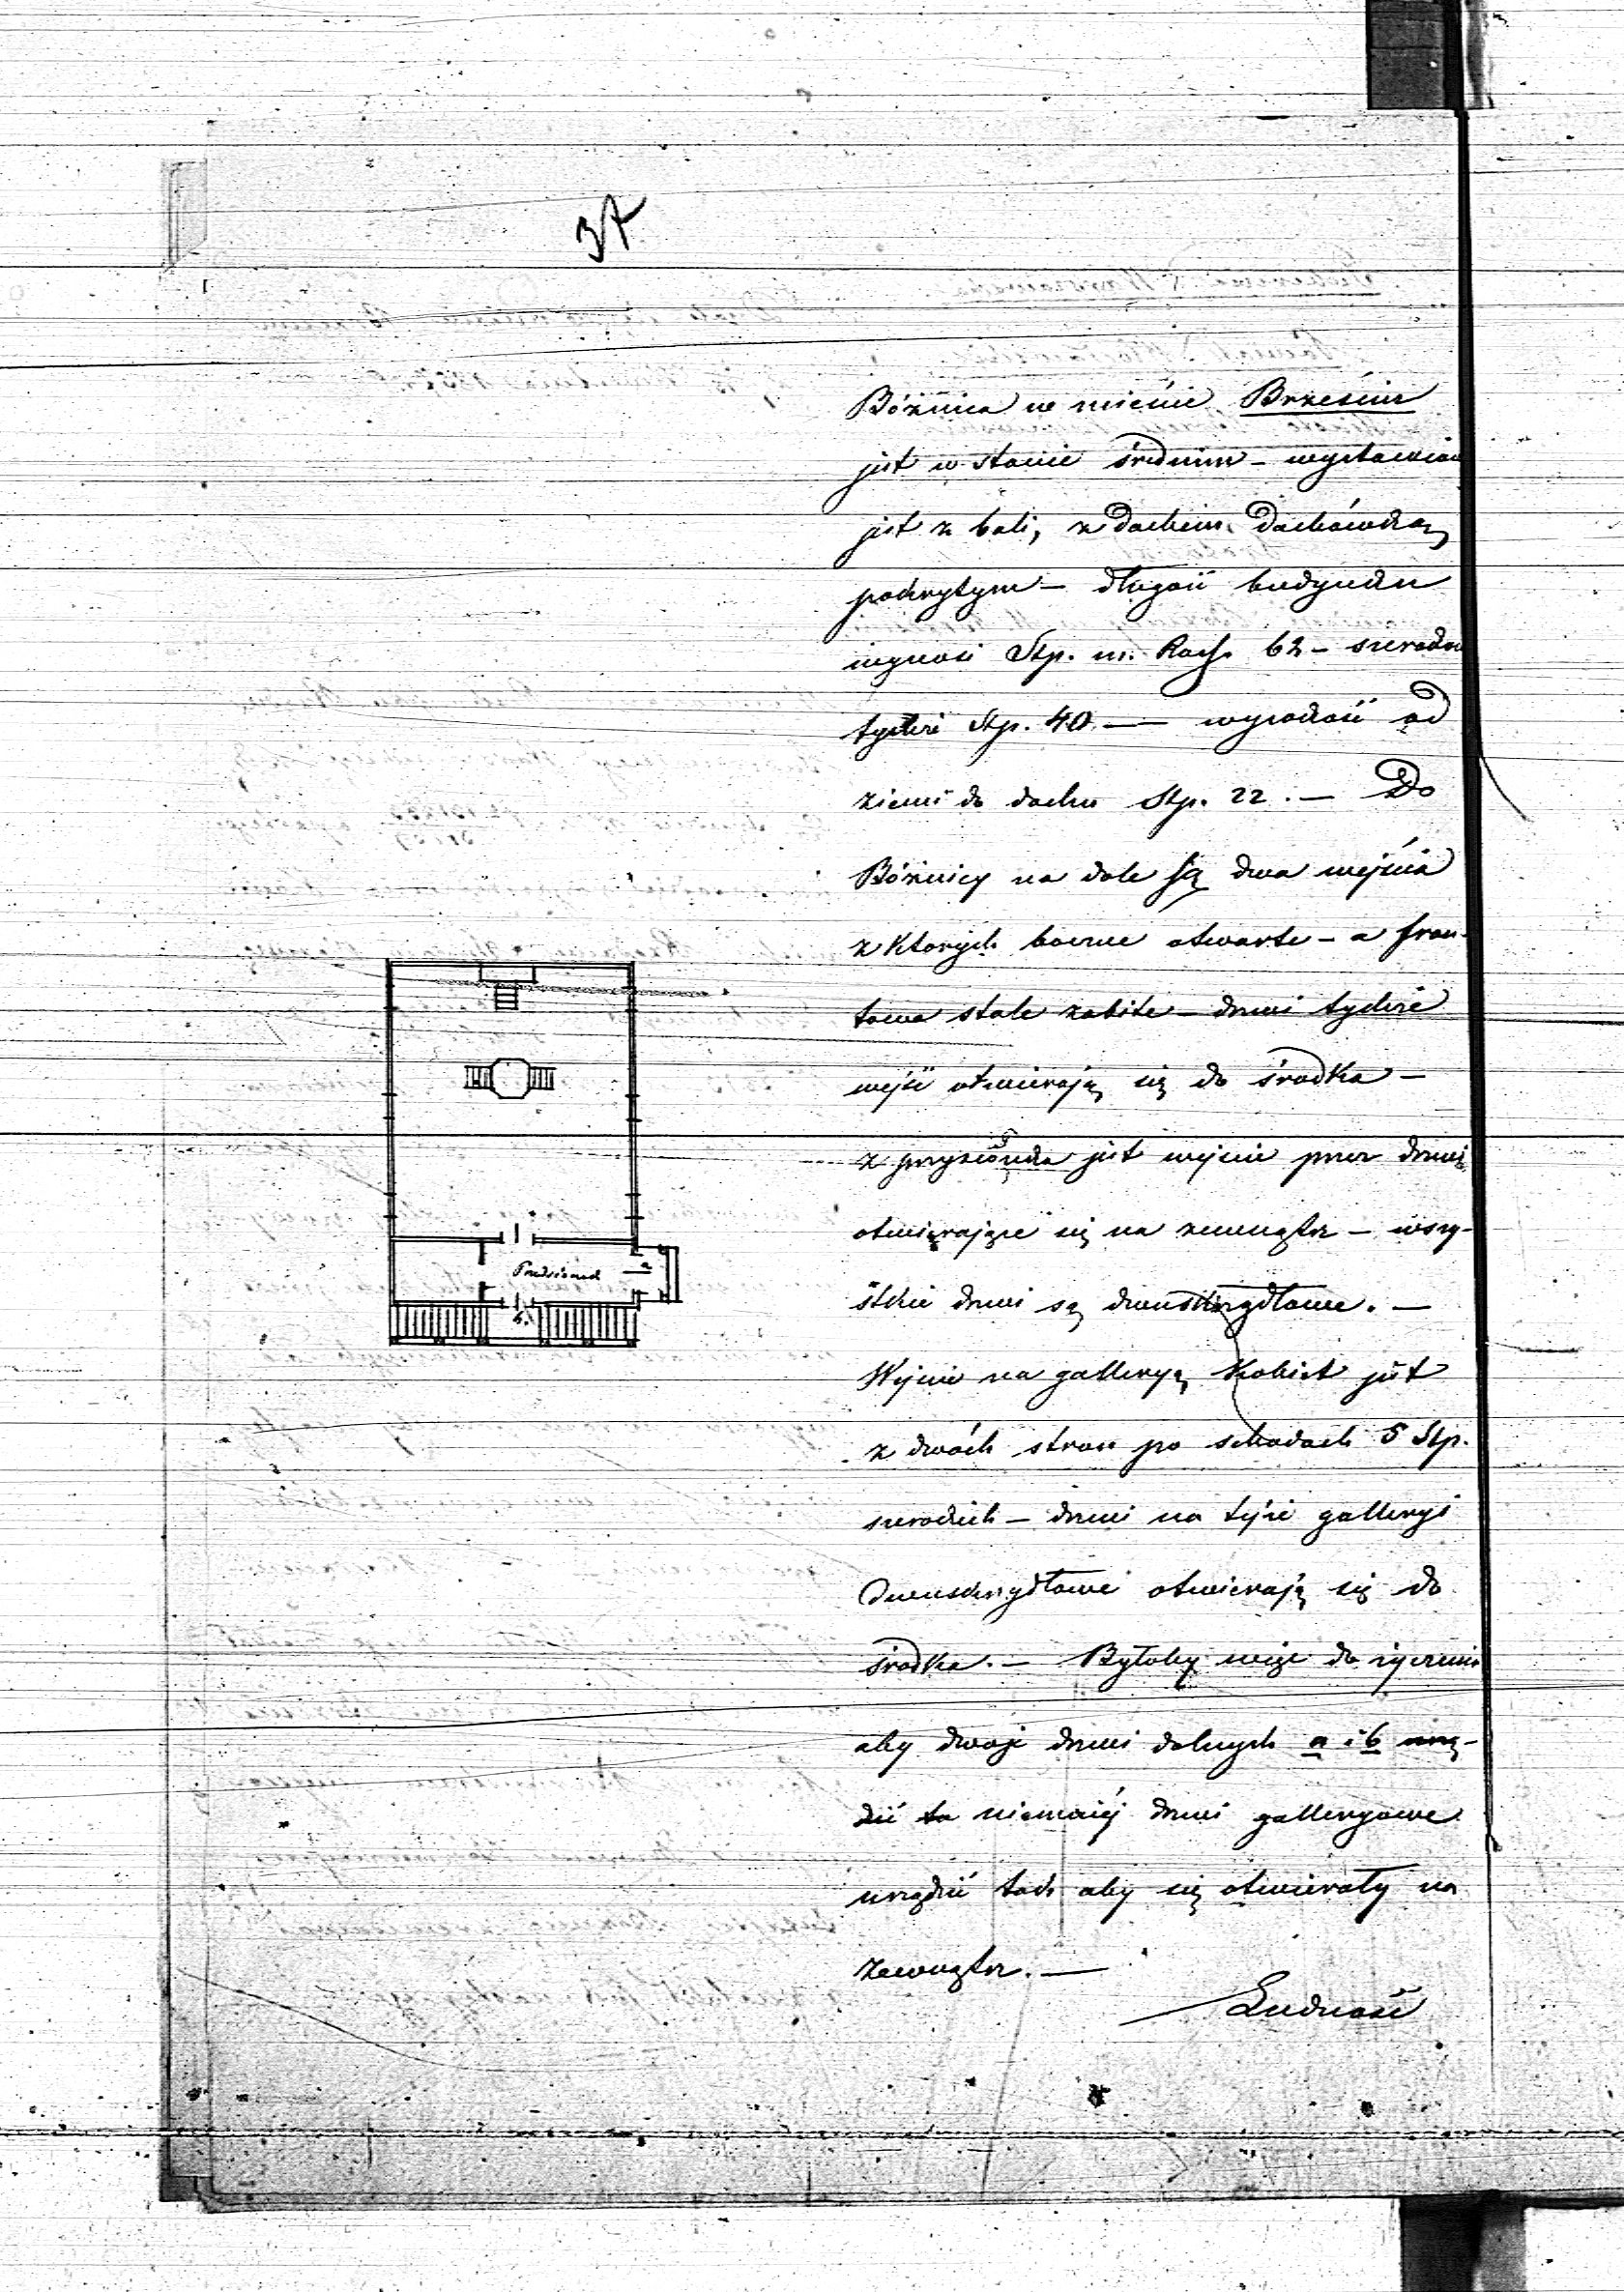 37
Bóżnica w mieście Brześciu
jest w stanie średnim – wystawiona
jest z bali, z dachem dachówką
pokrytym – długość budynku
wynosi Stp. m. Ross. 62 – szeroko
tychże Stp. 40 — wysokość od
ziemi do dachu Stp. 22. – Do
Bóżnicy na dole są dwa wejścia
z których boczne otwarte – a fron-
towe stale zabite – drzwi tychże
wejść otwierają się do środka –
z przysionka jest wejście przez drzwi
otwierające się na zewnątrz – wszy-
stkie drzwi są dwuskrzydłowe. –
Wejście na galleryą Kobiet jest
z dwóch stron po schodach 5 Stp.
szerokich – drzwi na tejże galleryi
dwuskrzydłowe otwierają się do
środka. – Byłoby więc do życzenia
aby dwoje drzwi dolnych a i b urzą-
dzić to niemniéj drzwi galleryowe
urządzić tak aby się otwierały na
zewnątrz. —
Ludność
Przedsionek
a
b.